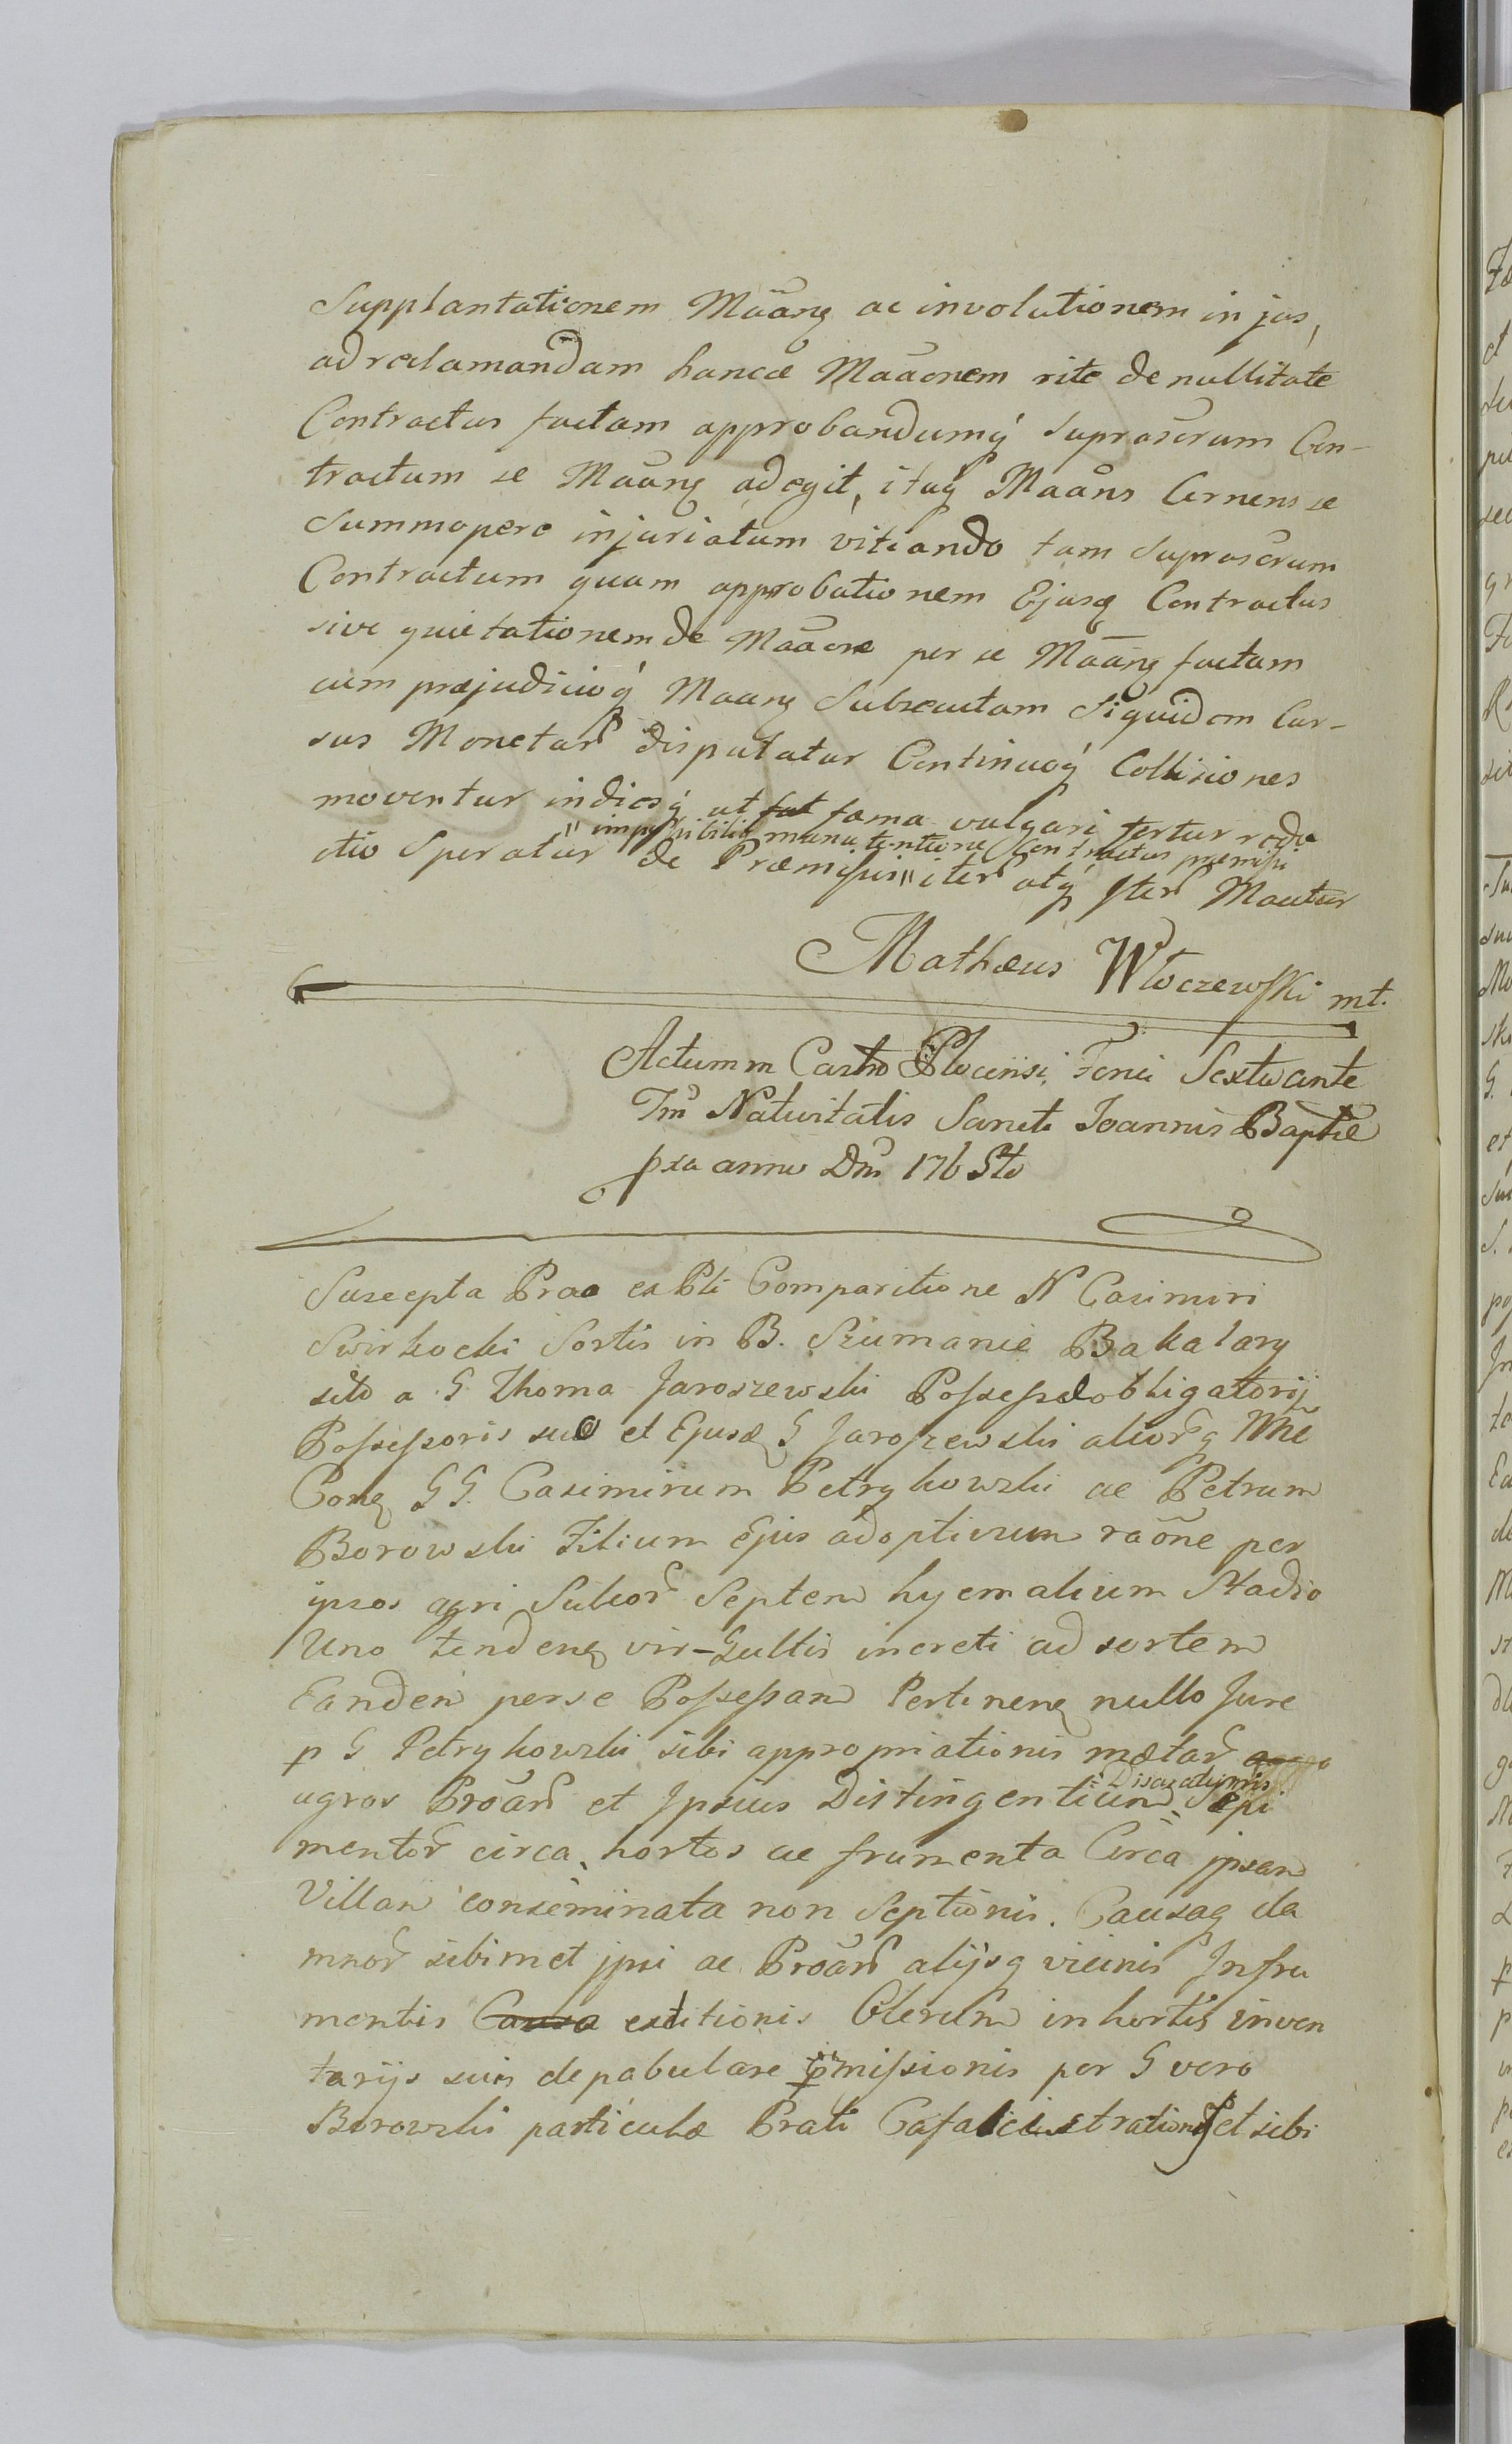 Supplantationem Māāng ac involutionem in jus,
ad reclamandam hancce Māāonem rite de nullitate
Contractus factam approbandumq́ suprascrum Con-
tractum se Māāng adegit, itaq́ Maāns Cernens se
Summopere injuriatum vitiando tam suprascrum
Contractum quam approbationem Ejusq Contractus
sive quietationem de Māāone per se Māāng factam
cum præjudicioq́ Maang Subsecutam Siquidem Cur-
sus Monetar disputatur Continuoq́ Collisiones
moventur indiesq́ ut fat fama vulgari fertur redu
" impossibiliq manutentione Contractus præmissi
ctio Speratur de Præmissis " iter atq́ iter Maatur
Mathæus Włoczewski mt.
Actum in Castro Plocensi, Feria Sexta ante
Fm Nativitatis Sancti Joannis Baptæ
pxa anno Dni 1765to
Suscepta Prao ex Pti Comparitione N Casimiri
Swirkocki Sortis in B. Sziumanie Bakalary
sito a G Thoma Jaroszewski Possess obligatorij
Possessoris suo et Ejusd G Jaroszewski aliorq Nnē
Conq GG. Casimirum Petrykowski ac Petrum
Borowski Filium Ejus adoptivum raōne per
ipsos agri Sulcor Septem hyemalium Stadio
Uno tendenq vir-Gultis increti ad sortem
Eandem per se Possessam Pertinenq nullo Jure
p G Petrykowski sibi appropriationis metar
agros Proān et Ipsius Distingentium Disaxationis Sepi
mentor circa hortos ac frumenta Circa ipsam
Villam conseminata non Septionis. Causaq da
mnor sibimet ipsi ac Proān alijsq vicinis In fru
mentis Causa extitionis Olerum in hortis inven
tarijs suis depabulare pmissionis per G vero
Borowski particulæ Prati et sibi